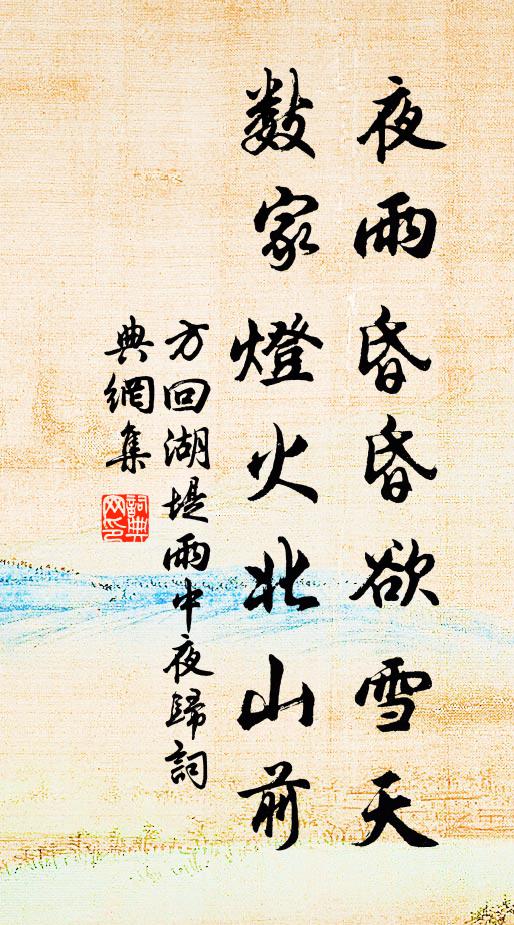 夜雨昏昏欲雪天
數家燈火北山前
方回湖堤雨中夜歸詞
典網集
詞典網印